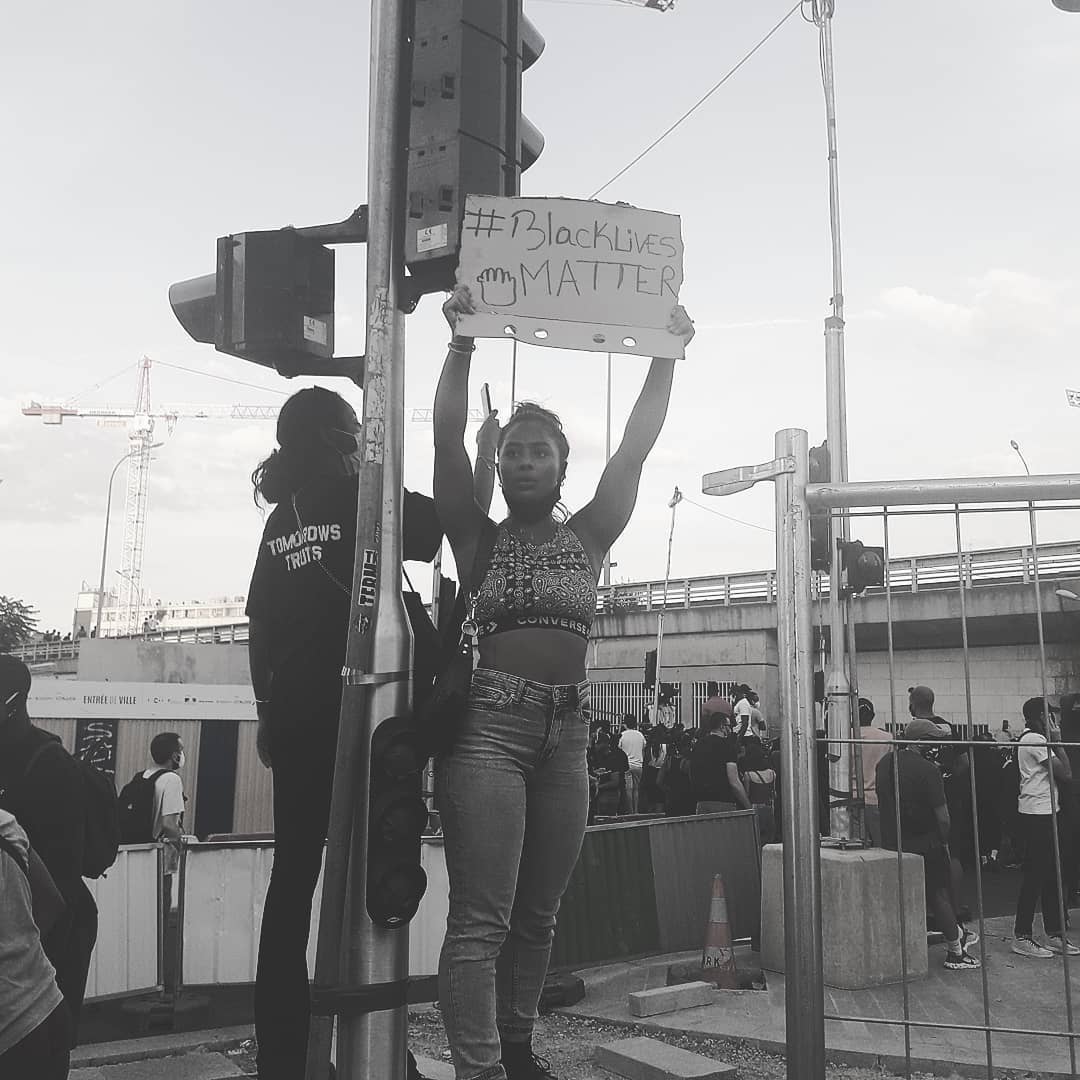 #BlackLives
MATTER
TOMORROWS
TRUTS
CONVERSE
ENTRÉE DE VILLE